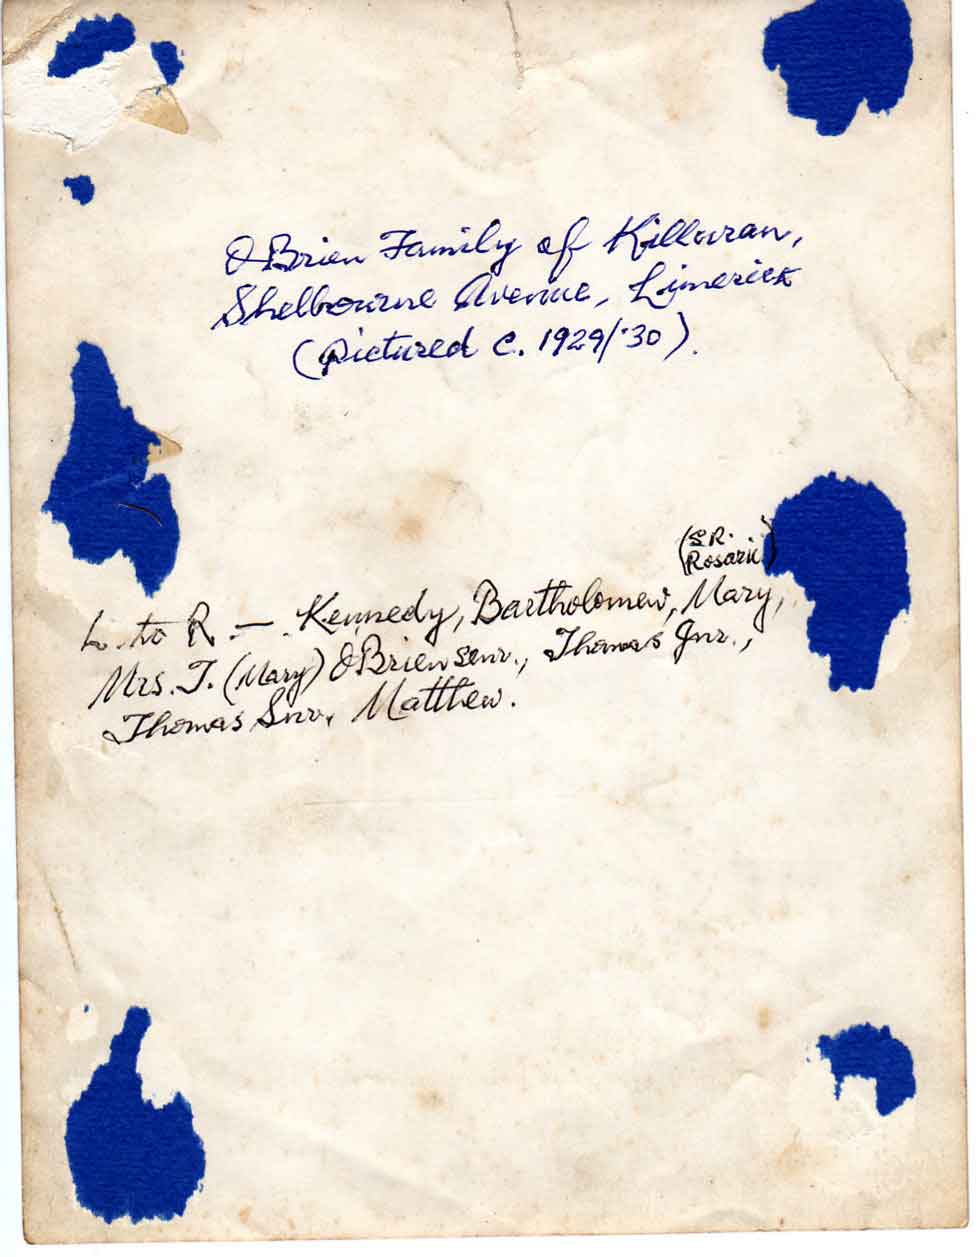 O'Brien Family of Killuran,
Shelbourne Avenue, Limerick
(Pictured c. 1929/'30).
(SR.
Rosarie)
L. to R. — Kennedy, Bartholomew, Mary,
Mrs. T. (Mary) O'Brien Senr., Thomas Jnr.,
Thomas Snr, Matthew.